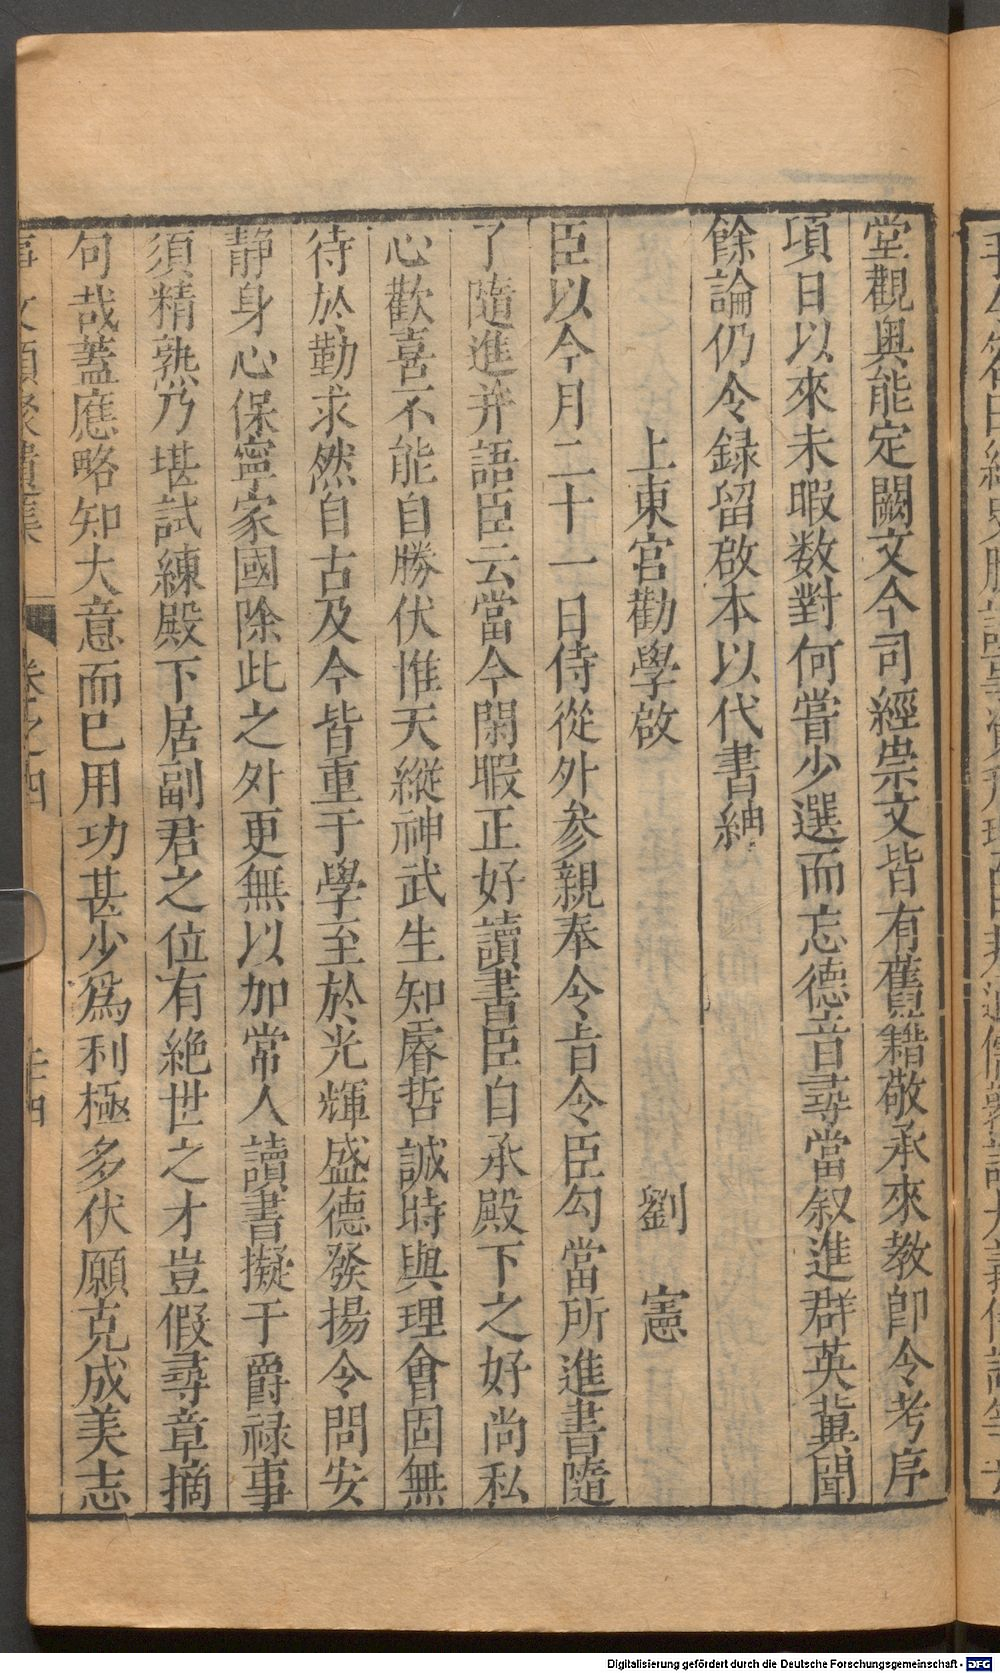 堂觀奥能定闕文今司經崇文皆有舊籍敬承來教即令考序
項日以來未暇数對何嘗少選而忘德音尋當叙進群英冀聞
餘論仍令録留啟本以代書紳
上東宫勸學啟 劉憲
臣以今月二十一日侍從外参親奉令旨令臣勾當所進書隨
了隨進并語臣云當今閑暇正好讀書臣自承殿下之好尚私
心歡喜不能自勝伏惟天縱神武生知睿哲誠時與理會固無
待於勤求然自古及今皆重于學至於光輝盛德發揚令問安
静身心保寧家國除此之外更無以加常人讀書擬于爵禄事
須精熟乃堪試練殿下居副君之位有絶世之才豈假尋章摘
句哉蓋應略知大意而已用功甚少爲利極多伏願克成美志
事文類聚集 卷之四
Digitalisierung gefördert durch die Deutsche Forschungsgemeinschaft - DFG